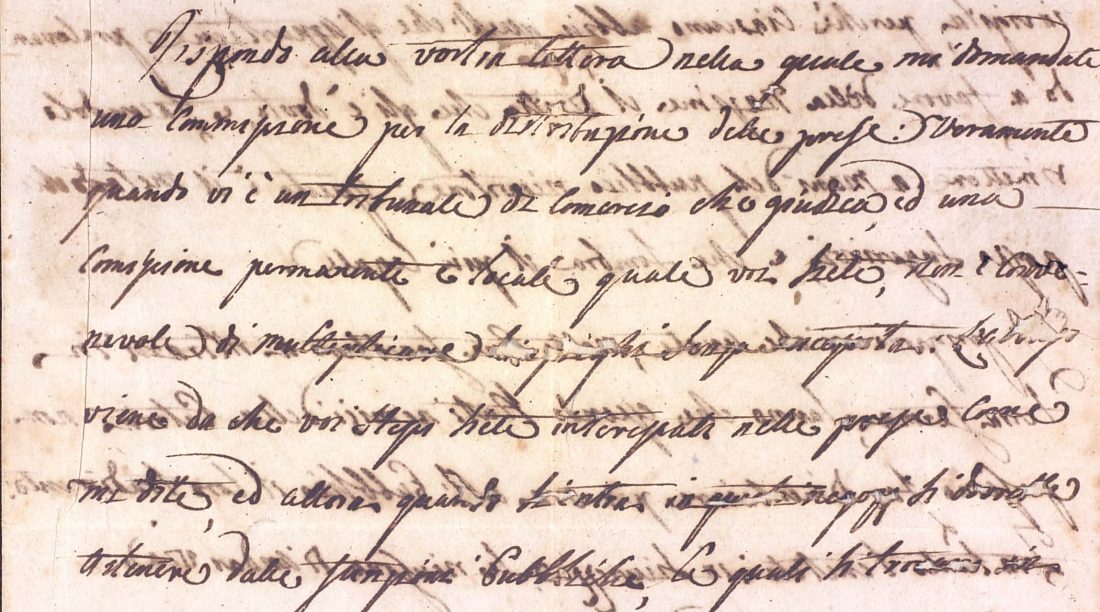 Rispondo alla vostra lettera nella quale mi domandate
una Commissione per la distribuzione delle prese: Veramente
quando vi è un tribunale di Comercio che giudica, ed una
Comissione permanente e locale quale voi siete, non è conve-
nevole di multiplicare senza necessità.
viene da che voi stessi siete interessati nelle prese come
mi dite, ed allora quando si entra in questi negozj si dovrebbe
astenere dalle funzioni Pubbliche, le quali si